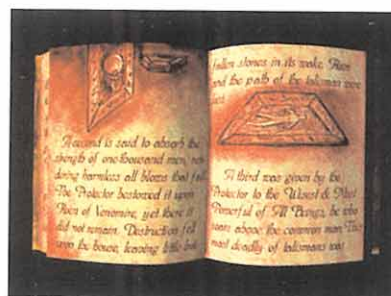 A second is said to absorb the
strength of one thousand men, ren-
dering harmless all blows that fall.
The Protector bestowed it upon
of Venomire, yet there it
did not remain. Destruction fell
upon the house, leaving little but
fallen stones in its wake.
and the path of the talisman were
lost.
A third was given by the
Protector to the Wisest & Most
Powerful of All Beings, he who
soars above the common man. This
most deadly of talismans was